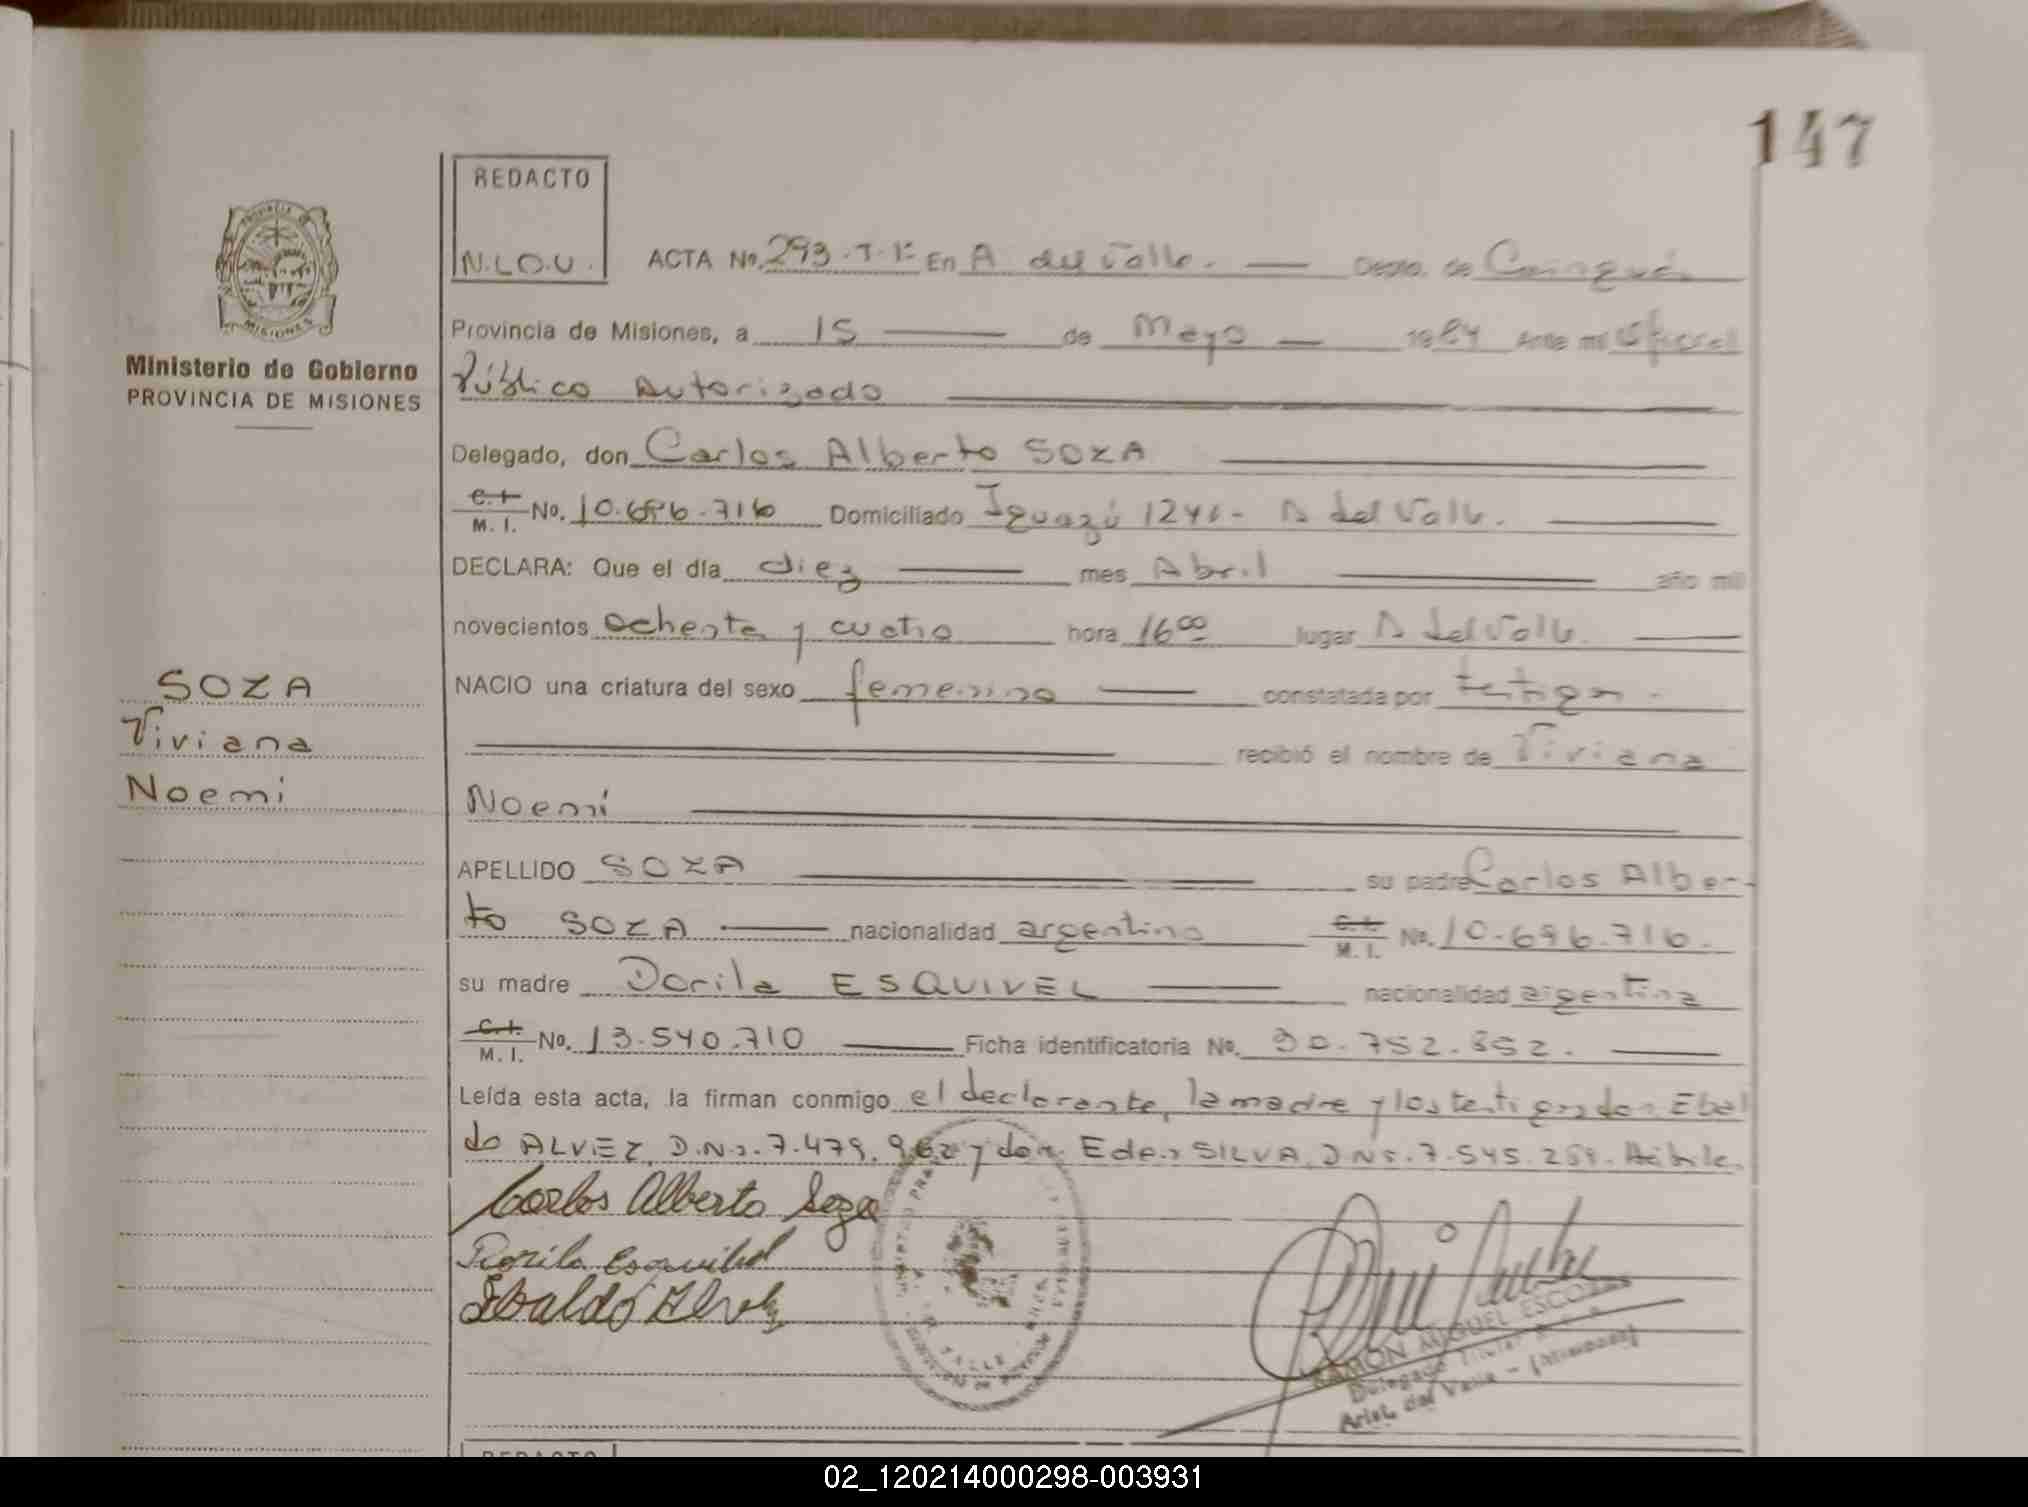 147
REDACTO
N.L.O.U.
ACTA No. 293.T.1º En A. del Valle. Depto. de Cainguás
PROVINCIA DE MISIONES
Ministerio de Gobierno
PROVINCIA DE MISIONES
Provincia de Misiones, a 15 de Mayo 1984 Ante mí Oficial
Público Autorizado
Delegado, don Carlos Alberto SOZA
C.I. M. I. No. 10.696.716 Domiciliado Iguazú A del Valle.
DECLARA: Que el día diez mes Abril año mil
novecientos ochenta y cuatro hora 16 00 lugar A del Valle.
SOZA
Viviana
Noemi
NACIO una criatura del sexo femenino constatada por testigos.
recibió el nombre de Viviana
Noemí
APELLIDO SOZA su padre Carlos Alber-
to SOZA nacionalidad argentino C.I. M. I. No. 10.696.716.
su madre Dorila ESQUIVEL nacionalidad argentina
C.I. M. I. No. 13.540.710 Ficha identificatoria No. 30.752.352.
Leída esta acta, la firman conmigo el declarante, la madre y los testigos don Ebal
do ALVEZ, D.N.I. 7.479.962 y don Eden SILVA, D.N.I. 7.545. Hábiles
Carlos Alberto Soza
Dorila Esquibel
Ebaldo Alvez
RAMON MIGUEL ESCOBAR
Delegado Titular
Arist. del Valle - (Misiones)
REDACTO
02_120214000298-003931